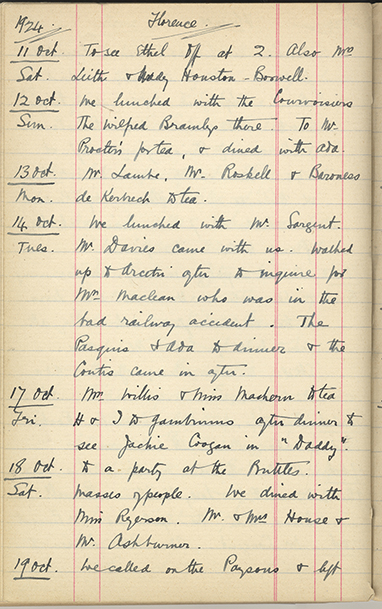 1924. Florence.
11 Oct. To see Ethel off at 2. Also Mrs
Sat. Leith & Lady Houston-Boswell.
12 Oct. We lunched with the Courvoisiers
Sun. The Wilfred Bramlys there. To Mr.
Procter's for tea, & dined with Ada.
13 Oct. Mr. Laube, Mr. Roskell & Baroness
Mon. de Kerbrech to tea.
14 Oct. We lunched with Mr. Sargent.
Tues. Mr. Davies came with us. Walked
up to after to inquire for
Mrs. Maclean who was in the
bad railway accident. The
& Ada to dinner & the
came in after.
17 Oct. Mrs. Willis & Miss to tea
Fri. H & I to Gambrinus after dinner to
see Jackie Coogan in "Daddy".
18 Oct. To a party at the
Sat. masses of people. We dined with
Miss Ryerson. Mr. & Mrs House &
Mr. Ashburner.
19 Oct. We called on the Paysons & left